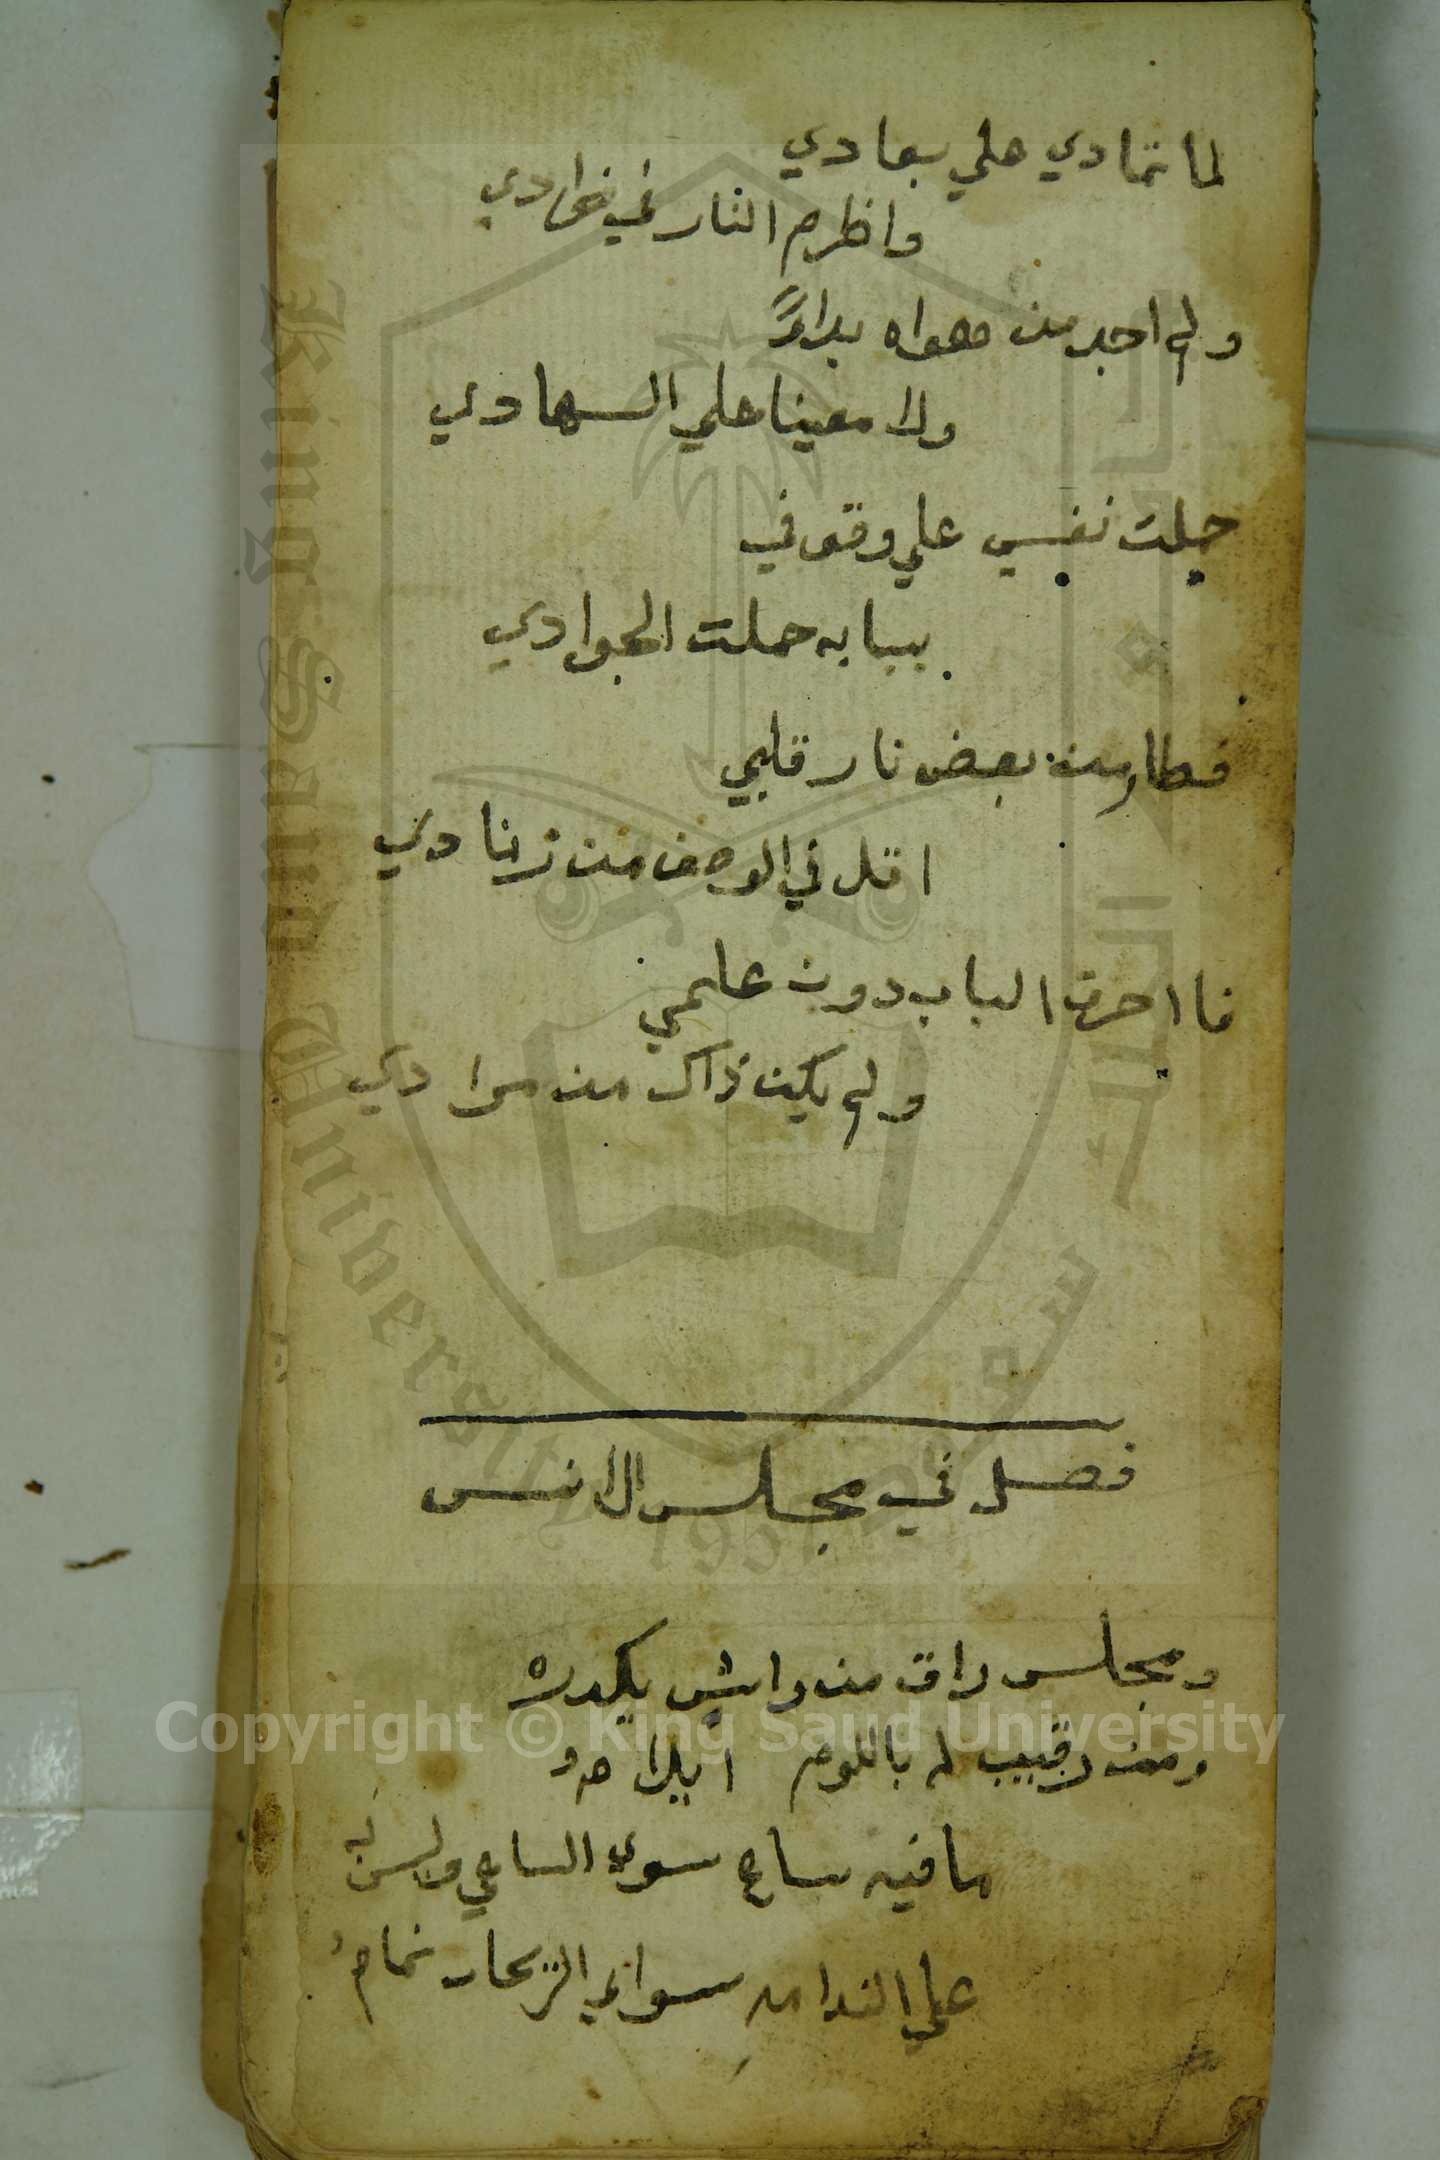 لما تمادي علي بعادي
واظرم النار في فوادي
ولم اجد من هواه بداً
ولا معينا علي السهادي
حملت نفسي علي وقوفي
ببابه حملت الجوادي
فطار من بعض نار قلبي
اقل في الوصف من زنادي
فاحرق الباب دون علمي
ولم يكن ذاك من مرادي
فصل في مجلس الانس
ومجلس راق من واش يكدره
ومن رقيب له باللوم
ما فيه ساع سوي الساعي وليس له
علي الندامه سواي الريحان نمام
King Saud University
1957
Copyright © King Saud University